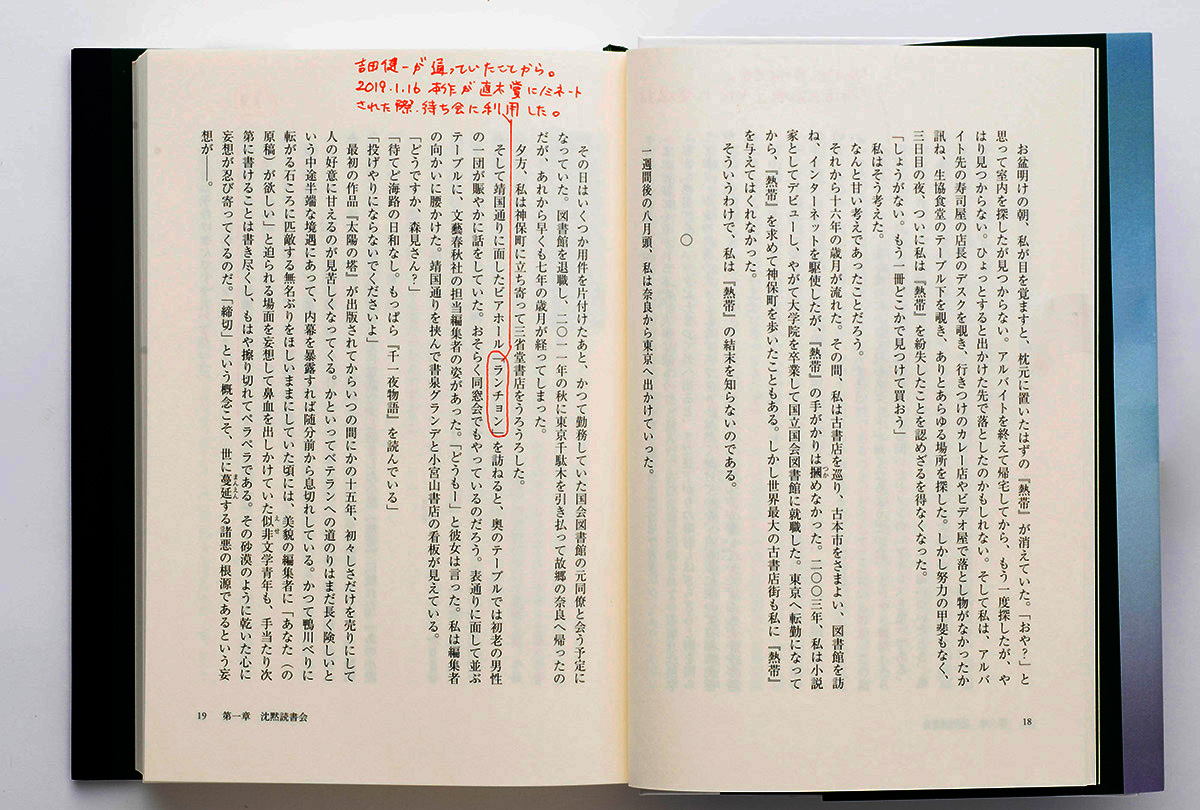 お盆明けの朝、私が目を覚ますと、枕元に置いたはずの『熱帯』が消えていた。「おや？」と
思って室内を探したが見つからない。アルバイトを終えて帰宅してから、もう一度探したが、や
はり見つからない。ひょっとすると出かけた先で落としたのかもしれない。そして私は、アルバ
イト先の寿司屋の店長のデスクを覗き、行きつけのカレー店やビデオ屋で落とし物がなかったか
訊ね、生協食堂のテーブルの下を覗き、ありとあらゆる場所を探した。しかし努力の甲斐もなく、
三日目の夜、ついに私は『熱帯』を紛失したことを認めざるを得なくなった。
「しょうがない。もう一冊どこかで見つけて買おう」
私はそう考えた。
なんと甘い考えであったことだろう。
それから十六年の歳月が流れた。その間、私は古書店を巡り、古本市をさまよい、図書館を訪
ね、インターネットを駆使したが、『熱帯』の手がかりは摑めなかった。二〇〇三年、私は小説
家としてデビューし、やがて大学院を卒業して国立国会図書館に就職した。東京へ転勤になって
から、『熱帯』を求めて神保町を歩いたこともある。しかし世界最大の古書店街も私に『熱帯』
を与えてはくれなかった。
そういうわけで、私は『熱帯』の結末を知らないのである。
○
一週間後の八月頭、私は奈良から東京へ出かけていった。
18
吉田健一が通っていたことから。
2019.1.16 本作が直木賞にノミネート
された際、待ち会に利用した。
その日はいくつか用件を片付けたあと、かつて勤務していた国会図書館の元同僚と会う予定に
なっていた。図書館を退職し、二〇一一年の秋に東京千駄木を引き払って故郷の奈良へ帰ったの
だが、あれから早くも七年の歳月が経ってしまった。
夕方、私は神保町に立ち寄って三省堂書店をうろうろした。
そして靖国通りに面したビアホール「ランチョン」を訪ねると、奥のテーブルでは初老の男性
の一団が賑やかに話をしていた。おそらく同窓会でもやっているのだろう。表通りに面して並ぶ
テーブルに、文藝春秋社の担当編集者の姿があった。「どうもー」と彼女は言った。私は編集者
の向かいに腰かけた。靖国通りを挟んで書泉グランデと小宮山書店の看板が見えている。
「どうですか、森見さん？」
「待てど海路の日和なし。もっぱら『千一夜物語』を読んでいる」
「投げやりにならないでくださいよ」
最初の作品『太陽の塔』が出版されてからいつの間にかの十五年、初々しさだけを売りにして
人の好意に甘えるのが見苦しくなってくる。かといってベテランへの道のりはまだ長く険しいと
いう中途半端な境遇にあって、内幕を暴露すれば随分前から息切れしている。かつて鴨川べりに
転がる石ころに匹敵する無名ぶりをほしいままにしていた頃には、美貌の編集者に「あなた（の
原稿）が欲しい」と迫られる場面を妄想して鼻血を出しかけていた似非文学青年も、手当たり次
第に書けることは書き尽くし、もはや擦り切れてペラペラである。その砂漠のように乾いた心に
妄想が忍び寄ってくるのだ。「締切」という概念こそ、世に蔓延する諸悪の根源であるという妄
想が――。
19 第一章 沈黙読書会